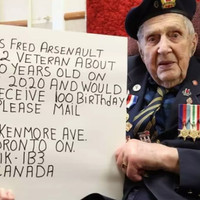 S FRED ARSENAULT
2 VETERAN ABOUT
0 YEARS OLD ON
2020 AND WOULD
ECEIVE 100 BIRTHDAY
PLEASE MAIL
KENMORE AVE.
ORONTO ON.
1K-1B3
CANADA